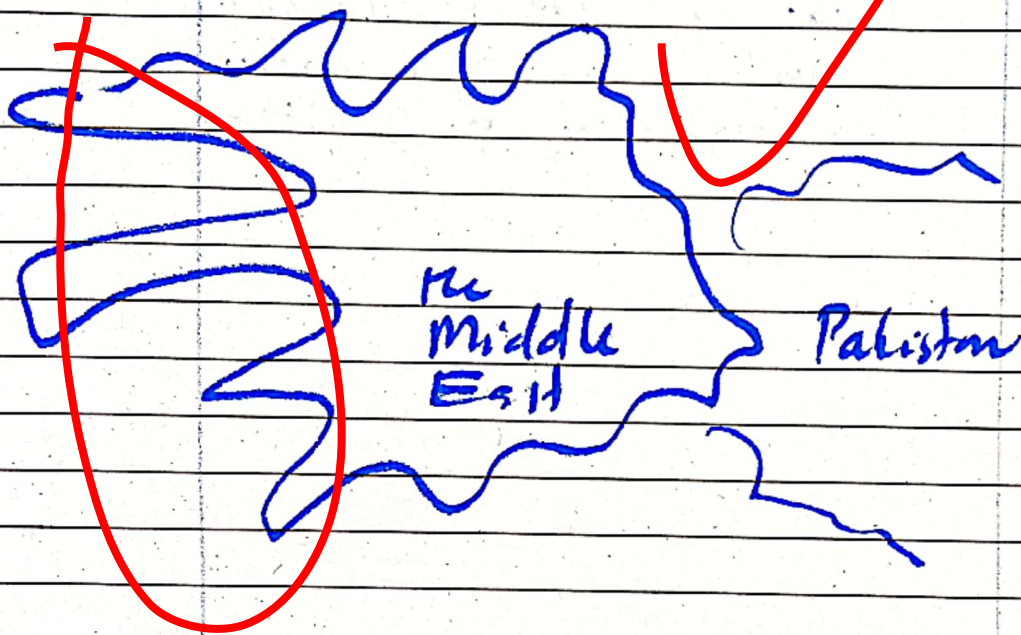 the
Middle
East
Pakistan